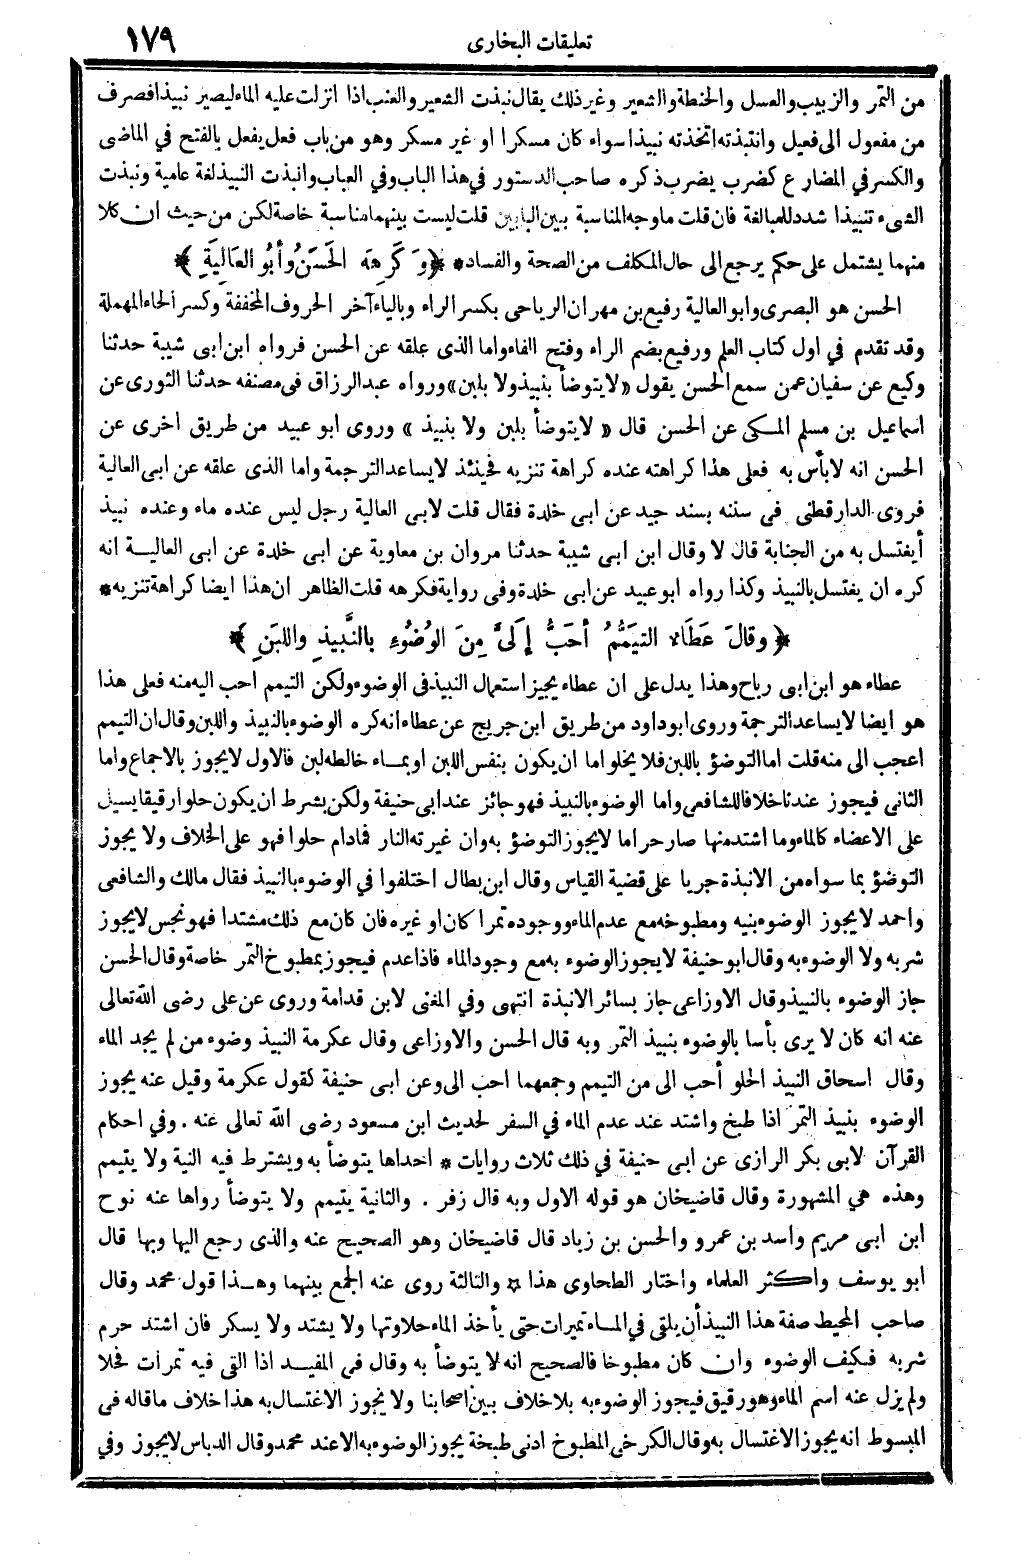 تعليقات البخارى
١٧٩
من التمر والزبيب والعسل والحنطة والشعير وغير ذلك يقال نبذت الشعير والعنب اذا انزلت عليه الماء ليصير نبيذا فصرف
من مفعول الى فعيل وانتبذته اتخذته نبيذا سواء كان مسكرا او غير مسكر وهو من باب فعل يفعل بالفتح في الماضى
والكسر في المضارع كضرب يضرب ذكره صاحب الدستور في هذا الباب وفي العباب وانبذت النبيذ لغة عامية ونبذت
الشىء تنبيذا شدد للمبالغة فان قلت ما وجه المناسبة بين البابين قلت ليست بينهما مناسبة خاصة لكن من حيث ان كلا
منهما يشتمل على حكم يرجع الى حال المكلف من الصحة والفساد * ﴿ وَكَرِهَهُ الحَسَنُ وأبُو العَالِيَةِ ﴾
الحسن هو البصرى وابو العالية رفيع بن مهران الرياحى بكسر الراء وبالياء آخر الحروف المخففة وكسر الحاء المهملة
وقد تقدم في اول كتاب العلم ورفيع بضم الراء وفتح الفاء واما الذى علقه عن الحسن فرواه ابن ابى شيبة حدثنا
وكيع عن سفيان عمن سمع الحسن يقول «لا يتوضأ بنبيذ ولا بلبن» ورواه عبد الرزاق في مصنفه حدثنا الثورى عن
اسماعيل بن مسلم المكى عن الحسن قال « لا يتوضأ بلبن ولا بنبيذ » وروى ابو عبيد من طريق اخرى عن
الحسن انه لا بأس به فعلى هذا كراهته عنده كراهة تنزيه فحينئذ لا يساعد الترجمة واما الذى علقه عن ابى العالية
فروى الدارقطنى في سننه بسند جيد عن ابى خلدة فقال قلت لابى العالية رجل ليس عنده ماء وعنده نبيذ
أيغتسل به من الجنابة قال لا وقال ابن ابى شيبة حدثنا مروان بن معاوية عن ابى خلدة عن ابى العالية انه
كره ان يغتسل بالنبيذ وكذا رواه ابو عبيد عن ابى خلدة وفي رواية فكرهه قلت الظاهر ان هذا ايضا كراهة تنزيه *
﴿ وقالَ عَطَاء التيَمُّمُ أحَبُّ إلَىَّ مِنَ الوُضُوءِ بالنَّبِيذِ واللبَنِ ﴾
عطاء هو ابن ابى رباح وهذا يدل على ان عطاء يجيز استعمال النبيذ في الوضوء ولكن التيمم احب اليه منه فعلى هذا
هو ايضا لا يساعد الترجمة وروى ابو داود من طريق ابن جريج عن عطاء انه كره الوضوء بالنبيذ واللبن وقال ان التيمم
اعجب الى منه قلت اما التوضؤ باللبن فلا يخلو اما ان يكون بنفس اللبن او بماء خالطه لبن فالاول لا يجوز بالاجماع واما
الثانى فيجوز عندنا خلافا للشافعى واما الوضوء بالنبيذ فهو جائز عند ابى حنيفة ولكن بشرط ان يكون حلوا رقيقا يسيل
على الاعضاء كالماء وما اشتد منها صار حراما لا يجوز التوضؤ به وان غيرته النار فمادام حلوا فهو على الخلاف ولا يجوز
التوضؤ بما سواه من الانبذة جريا على قضية القياس وقال ابن بطال اختلفوا في الوضوء بالنبيذ فقال مالك والشافعى
واحمد لا يجوز الوضوء بنيه ومطبوخه مع عدم الماء ووجوده تمرا كان او غيره فان كان مع ذلك مشتدا فهو نجس لا يجوز
شربه ولا الوضوء به وقال ابو حنيفة لا يجوز الوضوء به مع وجود الماء فاذا عدم فيجوز بمطبوخ التمر خاصة وقال الحسن
جاز الوضوء بالنبيذ وقال الاوزاعى جاز بسائر الانبذة انتهى وفي المغنى لابن قدامة وروى عن على رضى الله تعالى
عنه انه كان لا يرى بأسا بالوضوء بنبيذ التمر وبه قال الحسن والاوزاعى وقال عكرمة النبيذ وضوء من لم يجد الماء
وقال اسحاق النبيذ الحلو أحب الى من التيمم وجمعهما احب الى وعن ابى حنيفة كقول عكرمة وقيل عنه يجوز
الوضوء بنبيذ التمر اذا طبخ واشتد عند عدم الماء في السفر لحديث ابن مسعود رضى الله تعالى عنه . وفي احكام
القرآن لابى بكر الرازى عن ابى حنيفة في ذلك ثلاث روايات * احداها يتوضأ به ويشترط فيه النية ولا يتيمم
وهذه هي المشهورة وقال قاضيخان هو قوله الاول وبه قال زفر . والثانية يتيمم ولا يتوضأ رواها عنه نوح
ابن ابى مريم واسد بن عمرو والحسن بن زياد قال قاضيخان وهو الصحيح عنه والذى رجع اليها وبها قال
ابو يوسف واكثر العلماء واختار الطحاوى هذا * والثالثة روى عنه الجمع بينهما وهذا قول محمد وقال
صاحب المحيط صفة هذا النبيذ أن يلقى في الماء تميرات حتى يأخذ الماء حلاوتها ولا يشتد ولا يسكر فان اشتد حرم
شربه فكيف الوضوء وان كان مطبوخا فالصحيح انه لا يتوضأ به وقال في المفيد اذا القى فيه تمرات فحلا
ولم يزل عنه اسم الماء وهو رقيق فيجوز الوضوء به بلا خلاف بين اصحابنا ولا يجوز الاغتسال به هذا خلاف ما قاله في
المبسوط انه يجوز الاغتسال به وقال الكرخى المطبوخ ادنى طبخة يجوز الوضوء به الا عند محمد وقال الدباس لا يجوز وفي